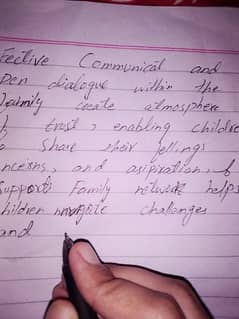 Fective Communicat and
Pen dialogue within the
Feamily create atmosphere
trust, enabling childre
o share their fellings
ncerns, and aspiration, &
Supports Family network helps
hildren challanges
and